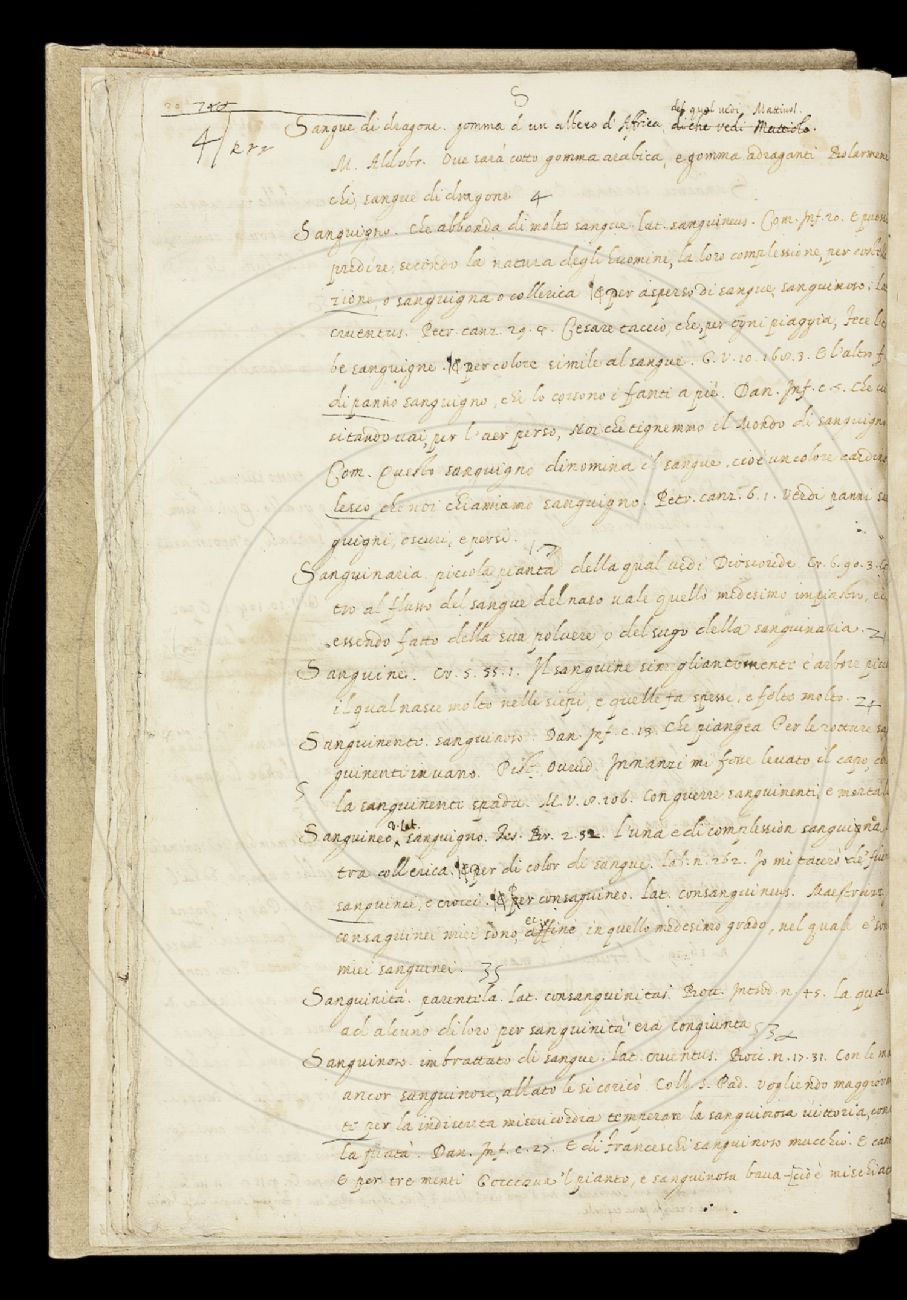 S
del qual vedi Mattiuol.
Sangue di dragone. gomma d'un albero d'Affrica, di che vedi Mattiolo.
M. Aldobr. Ove sarà cotto gomma arabica, e gomma adraganti Bolarmeni
chi, sangue di dragone 4
Sanguigno. Che abbonda di molto sangue. lat. sanguineus. Com. Inf. 20. E puossi
predire, secondo la natura degli huomini, la loro complessione, per
zione, o sanguigna o collerica per asperso di sangue, sanguinoso; la
cruentus. Petr. canz. 29. Cesare taccio, che, per ogni piaggia, Fece l'er
be sanguigne. per colore simile al sangue. G. V. 10. 168. 3. E l'altro f
di panno sanguigno, chi lo corsono i fanti a piè. Dan. Inf. c. 5. Che vi
sitando vai, per l'aer perso, Noi che tignemmo il Mondo di sanguigno
Com. Questo sanguigno dinomina il sangue, cioè un colore
lesco che noi chiamiamo sanguigno. Petr. canz. 6. 1. Verdi panni san
guigni, oscuri, e persi.
Sanguinaria. piccola pianta della qual vedi Dioscoride Cr. 6. 90. 3.
tro al flusso del sangue del naso vale quello medesimo impiastro, e
essendo fatto della sua polvere, o del sugo della sanguinaria.
Sanguine. Cr. 5. 55. 1. Il sanguine simigliantemente è arbore picc
il qual nasce molto nelle siepi, e quelle fa spesse, e folte molto.
Sanguinento. sanguinoso. Dan. Inf. c. 13. Che piangea Per le rotture san
guinenti invano. Pist. Ovvid. Innanzi mi fosse levato il capo, co
la sanguinenti spada. M. V. 8. 106. Con guerre sanguinenti, e mortal
Sanguineo, lat. sanguigno. Tes. Br. 2. 32. L'una è di complession sanguigna, 
tra collerica. per di color di sangue. Lab. n. 262. Io mi tacerò de' fiu
sanguinei, e crocei. per consaguineo. lat. consanguineus. Maestruzz.
consaguinei miei sono affine in quello medesimo grado, nel quale e' son
miei sanguinei. 35
Sanguinità. parentela. lat. consanguinitas. Bocc. Introd. n. 45. La qual
ad alcuno di loro per sanguinità era congiunta
Sanguinoso. imbrattato di sangue. lat. cruentus. Bocc. n. 17. 31. Con le ma
ancor sanguinose, allato le si coricò. Coll. S. Pad. Vogliendo maggiorm
te per la indiscreta misericordia temperare la sanguinosa vittoria, con
la pietà. Dan. Inf. c. 27. E di franceschi sanguinoso mucchio. E can
E per tre menti Gocceava 'l pianto, e sanguinosa bava cioè mischiat